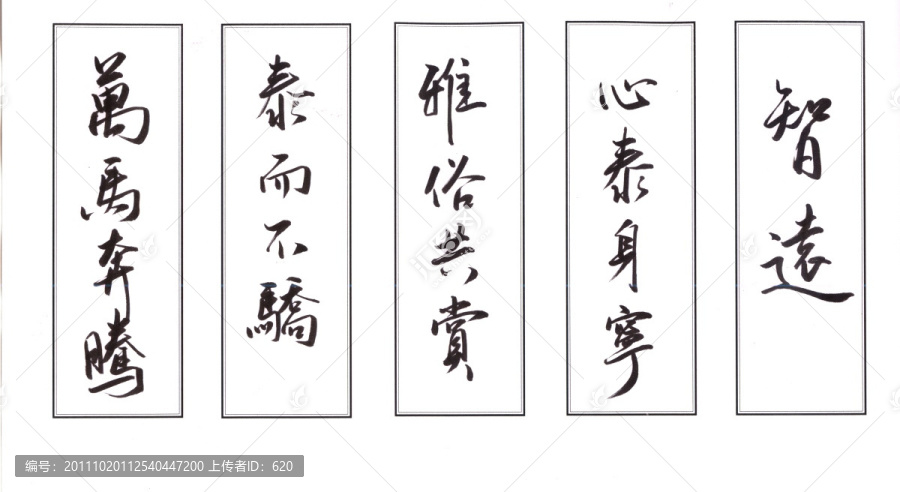 萬馬奔騰
泰而不驕
雅俗共賞
心泰身寧
智遠
编号：20111020112540447200 上传者ID：620